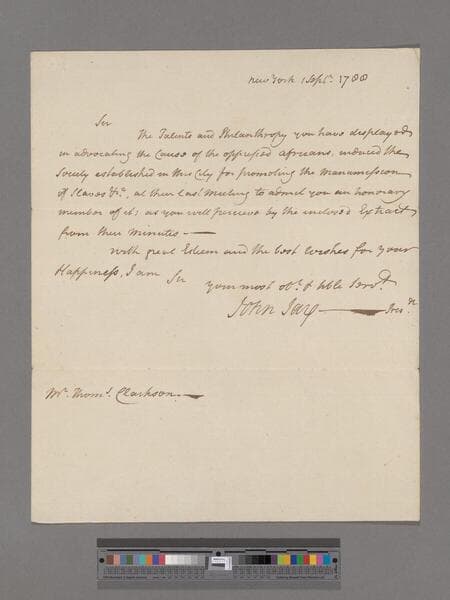 New York 1 Sepr. 1788
Sir
The Talents and Philanthropy you have displayed
in advocating the Cause of the oppressed Africans, induced the
Society established in this City for promoting the Manumission
of Slaves &c., at their last Meeting to admit you an honorary
member of it; as you will perceive by the inclosed Extract
from their Minutes —
With great Esteem and the best wishes for your
Happiness, I am Sir
your most obt. & hble Servt.
John Jay — Presdt.
Mr. Thoms. Clarkson. —